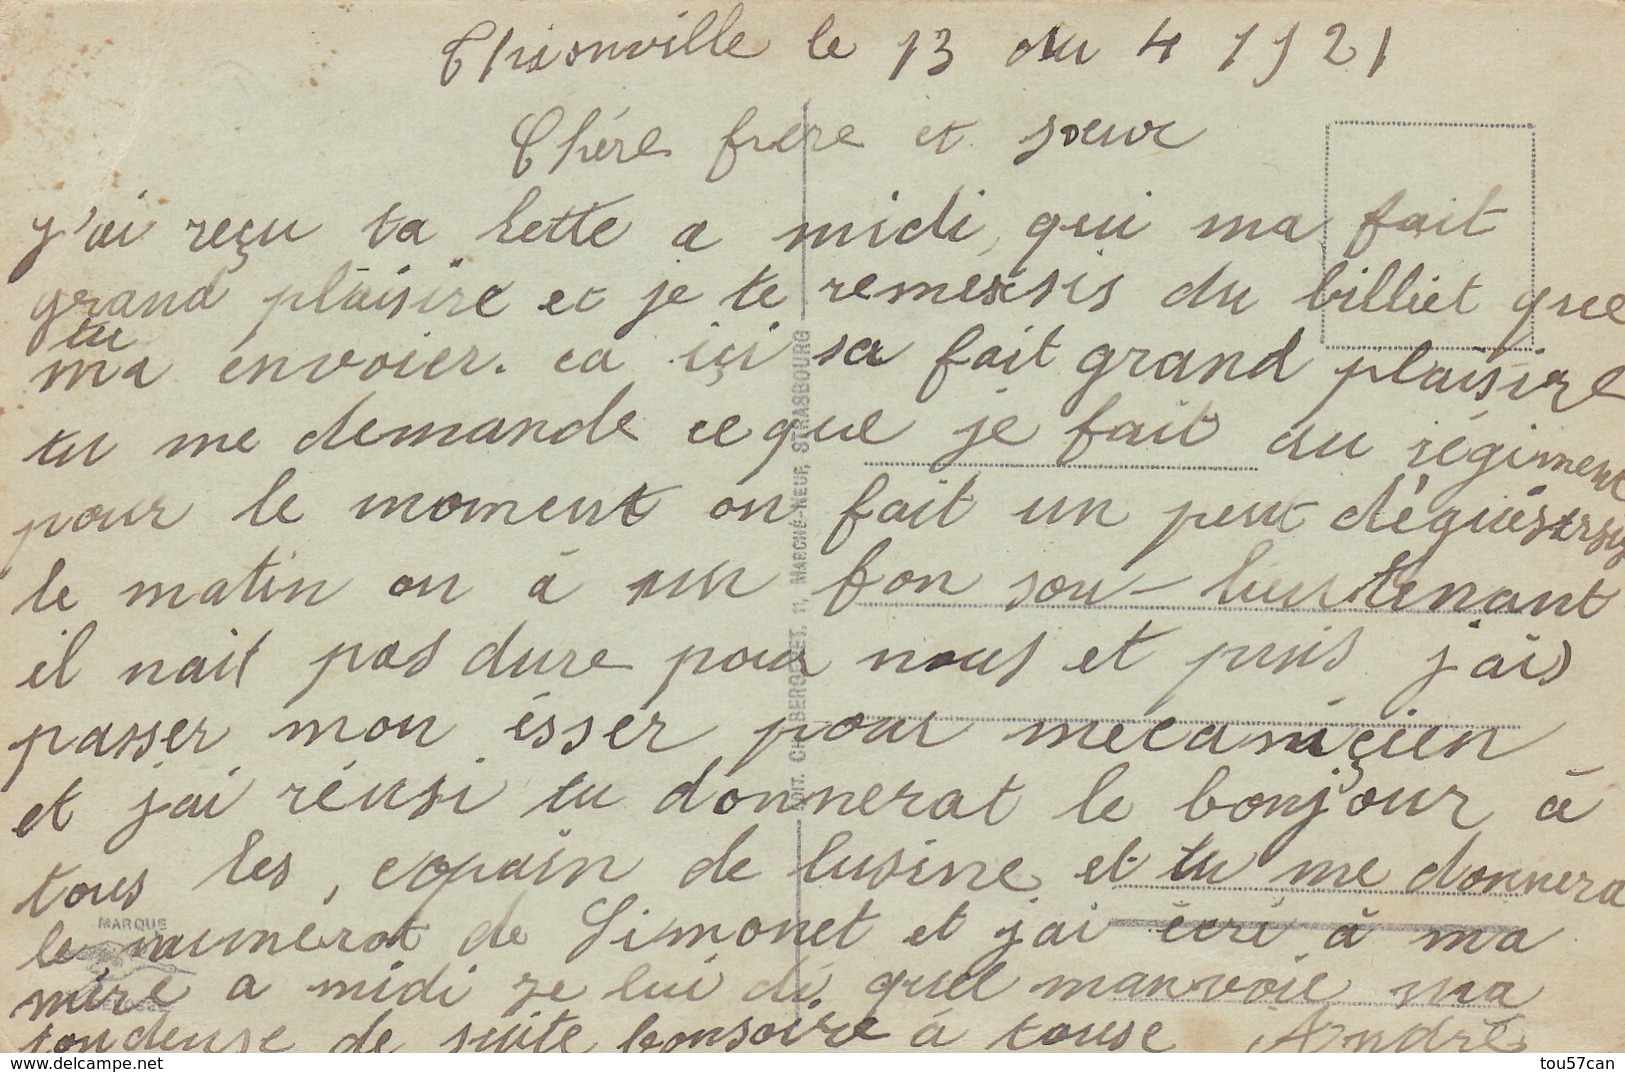 Thionville le 13 du 4 1921
Chére frere et soeur
j'ai reçu ta lette a midi, qui ma fait
grand plaisire et je te remersis du billiet que
tu
ma envoier. ca içi sa fait grand plaisire
tu me demande ce que je fait au régiment
pour le moment on fait un peut
le matin on à un bon sou-lieutenant
il nait pas dure pour nous et puis j'ais
passer mon ésser pour mecaniçien
et j'ai réusi tu donnerat le bonjour à
tous les, copain de lusine et tu me donnera
le numérot de Simonet et j'ai écri à ma
mère a midi je lui di, quel manvoie ma
tondeuse de suite bonsoire à touse André
EDIT. CH. BERGERET, 11, MARCHÉ-NEUF, STRASBOURG
MARQUE
tou57can